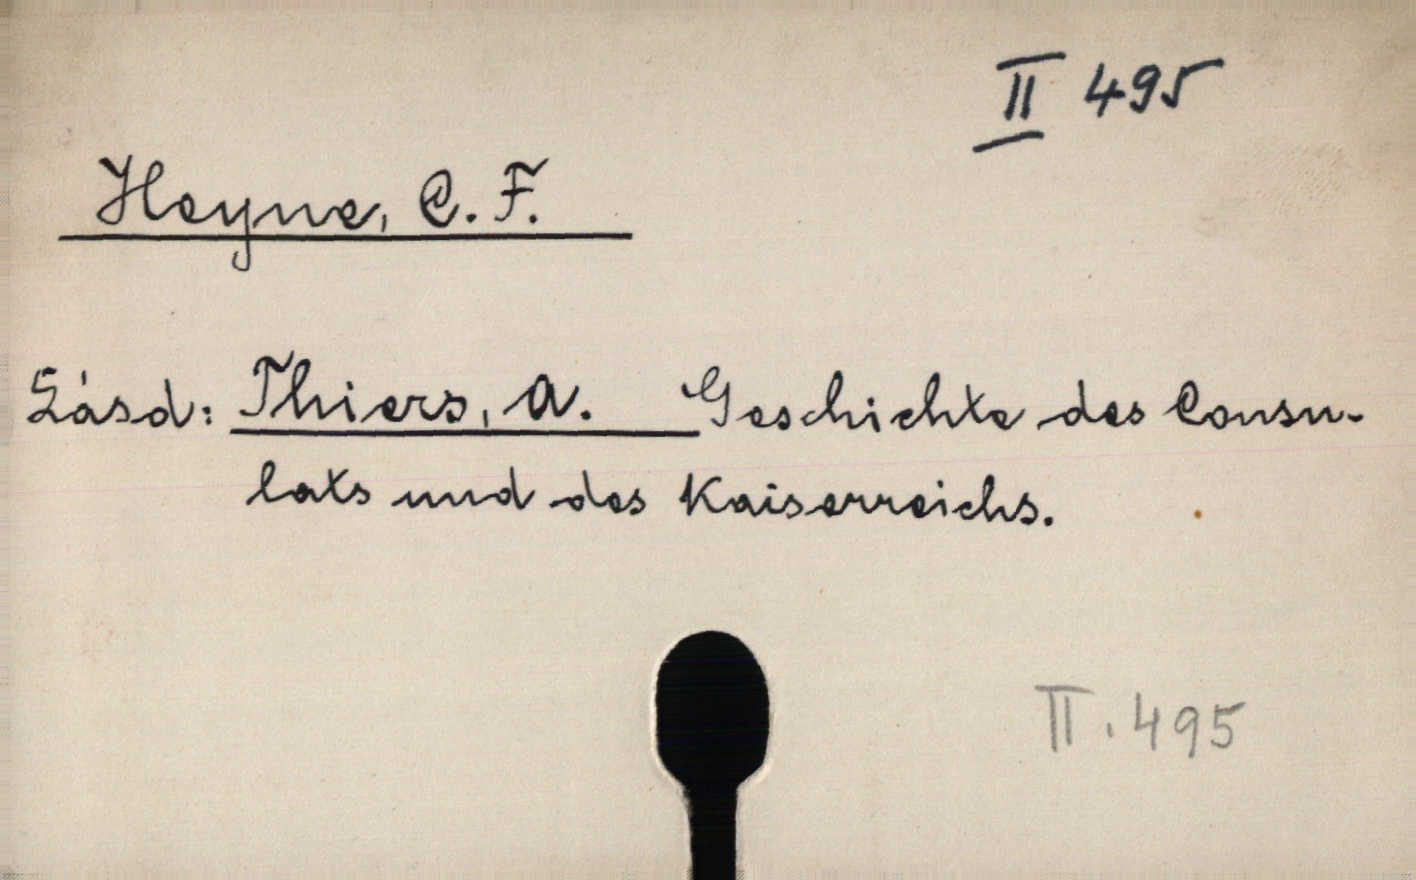 II 495
Heyne, C. F.
Lásd: Thiers, A. Geschichte des Consu-
lats und des Kaiserreichs.
II. 495